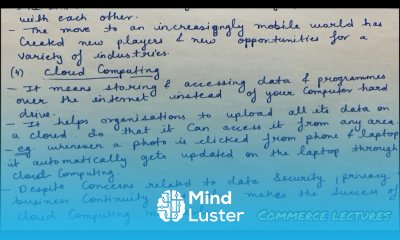 with each other.
- The move to an increasingly mobile world has
created new players & new opportunities for a
variety of industries.
(4) Cloud Computing
- It means storing & accessing data & programmes
over the internet instead of your computer hard
drive.
- It helps organisations to upload all its data on
a cloud. So that it can access it from any area.
- eg. whenever a photo is clicked from phone & laptop
it automatically gets updated on the laptop through
cloud computing.
- Despite concerns related to data security, privacy,
business continuity makes the success of
cloud computing
Mind
Luster
COMMERCE LECTURES